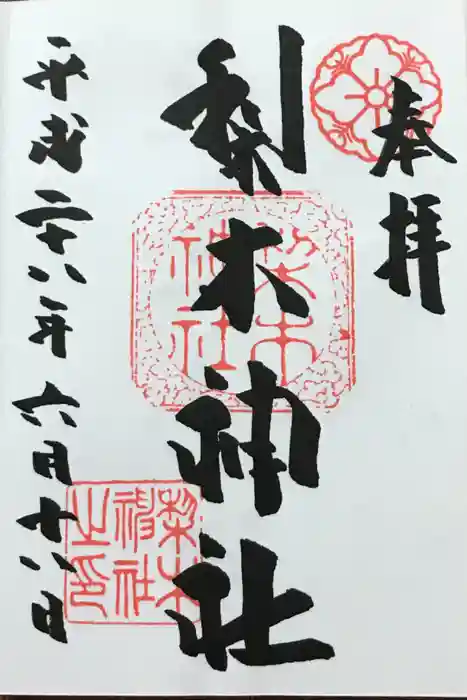 奉拝
梨木神社
平成二十八年六月十八日
梨木神社
梨木神社之印